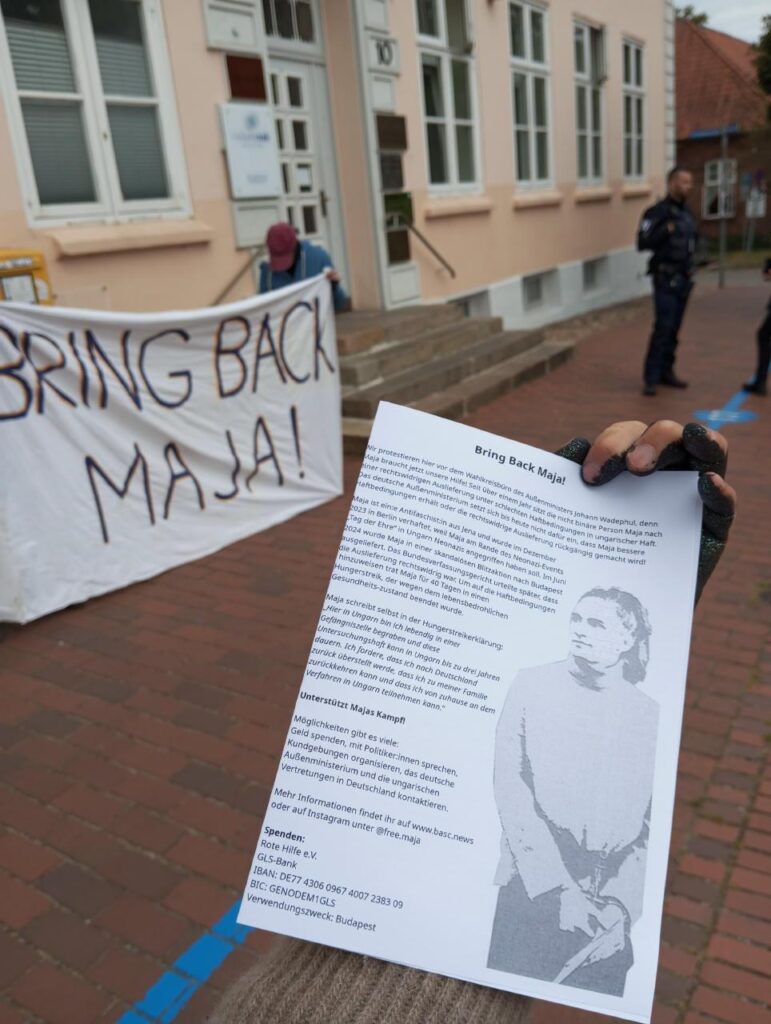 BRING BACK
MAJA!
10
Bring Back Maja!
Wir protestieren hier vor dem Wahlkreisbüro des Außenministers Johann Wadephul, denn
Maja braucht jetzt unsere Hilfe! Seit über einem Jahr sitzt die nicht binäre Person Maja nach
einer rechtswidrigen Auslieferung unter schlechten Haftbedingungen in ungarischer Haft.
Das deutsche Außenministerium setzt sich bis heute nicht dafür ein, dass Maja bessere
Haftbedingungen erhält oder die rechtswidrige Auslieferung rückgängig gemacht wird!
Maja ist eine Antifaschist:in aus Jena und wurde im Dezember
2023 in Berlin verhaftet, weil Maja am Rande des Neonazi-Events
„Tag der Ehre“ in Ungarn Neonazis angegriffen haben soll. Im Juni
2024 wurde Maja in einer skandalösen Blitzaktion nach Budapest
ausgeliefert. Das Bundesverfassungsgericht urteilte später, dass
die Auslieferung rechtswidrig war. Um auf die Haftbedingungen
hinzuweisen trat Maja für 40 Tagen in einen
Hungerstreik, der wegen dem lebensbedrohlichen
Gesundheits-zustand beendet wurde.
Maja schreibt selbst in der Hungerstreikerklärung:
„Hier in Ungarn bin ich lebendig in einer
Gefängniszelle begraben und diese
Untersuchungshaft kann in Ungarn bis zu drei Jahren
dauern. Ich fordere, dass ich nach Deutschland
zurück überstellt werde, dass ich zu meiner Familie
zurückkehren kann und dass ich von zuhause an dem
Verfahren in Ungarn teilnehmen kann.“
Unterstützt Majas Kampf!
Möglichkeiten gibt es viele:
Geld spenden, mit Politiker:innen sprechen,
Kundgebungen organisieren, das deutsche
Außenministerium und die ungarischen
Vertretungen in Deutschland kontaktieren.
Mehr Informationen findet ihr auf www.basc.news
oder auf Instagram unter @free.maja
Spenden:
Rote Hilfe e.V.
GLS-Bank
IBAN: DE77 4306 0967 4007 2383 09
BIC: GENODEM1GLS
Verwendungszweck: Budapest